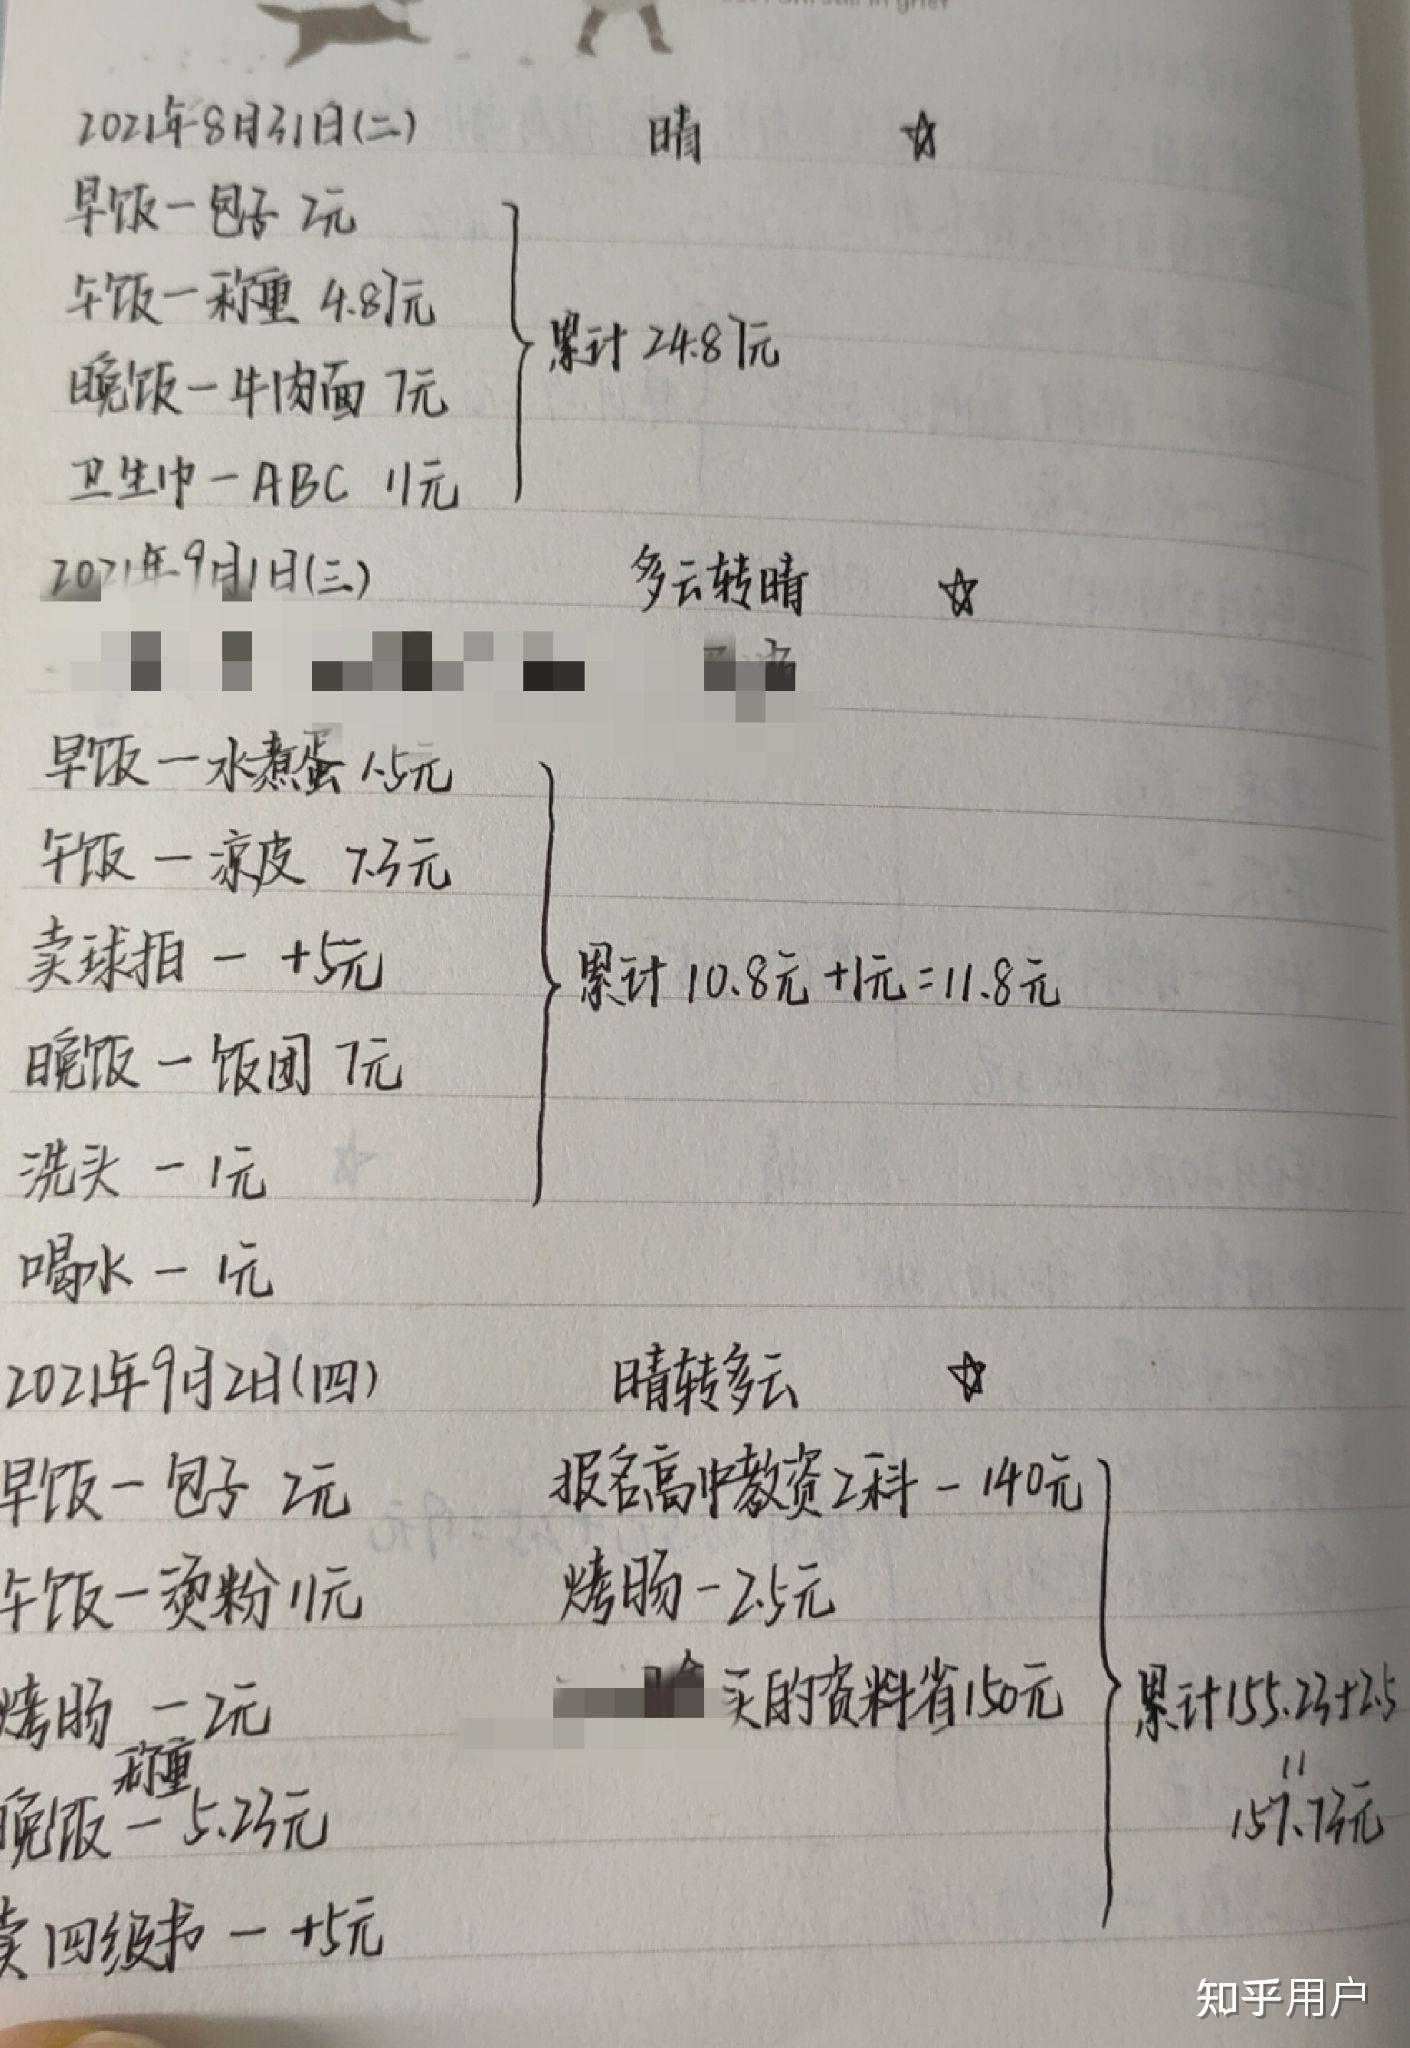 in grief
2021年8月31日(二) 晴 ☆
早饭-包子 2元
午饭-称重 4.87元
晚饭-牛肉面 7元
卫生巾-ABC 11元
累计 24.87元
2021年9月1日(三) 多云转晴 ☆
早饭-水煮蛋 1.5元
午饭-凉皮 7.3元
卖球拍- +5元
晚饭-饭团 7元
洗头-1元
累计 10.8元+1元=11.8元
喝水-1元
2021年9月2日(四) 晴转多云 ☆
早饭-包子 2元
午饭-烫粉 11元
烤肠 -2元
称重
晚饭-5.23元
卖四级书- +5元
报名高中教资2科-140元
烤肠-2.5元
买的资料省150元
累计155.23+2.5
=
157.73元
知乎用户